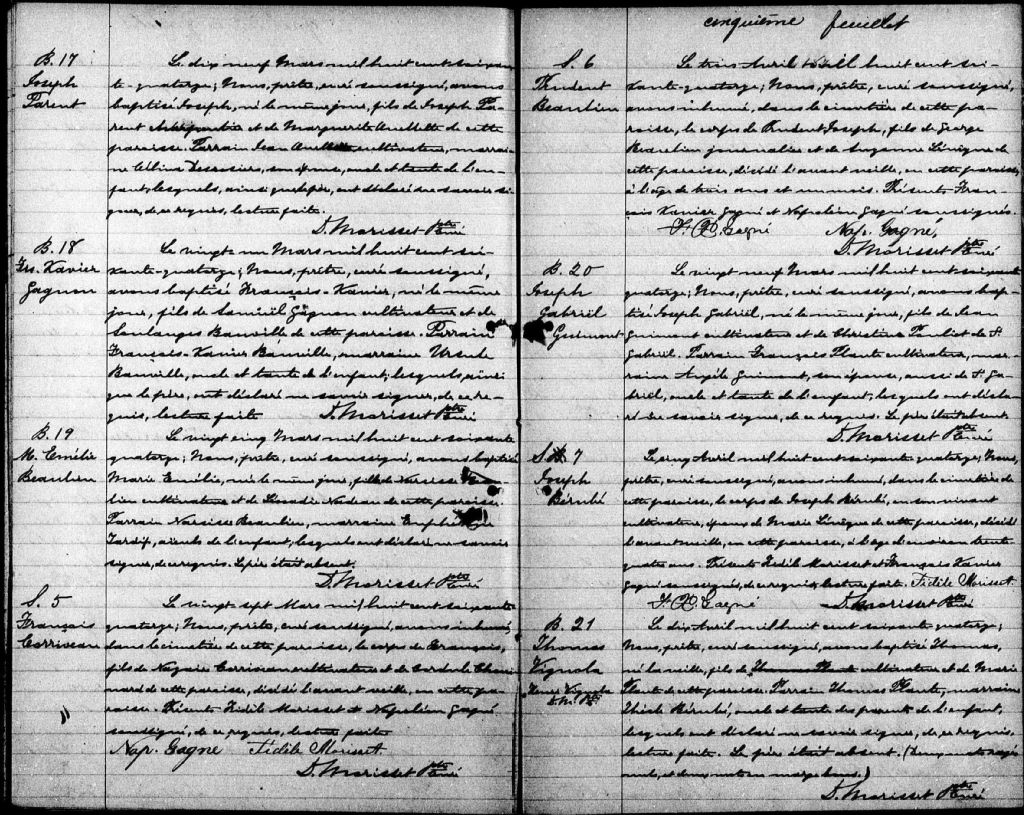 B. 17
Joseph
Parent
Le dix neuf Mars mil huit cent soixan-
te-quatorze; Nous, prêtre, curé soussigné, avons
baptisé Joseph, né le même jour, fils de Joseph Pa-
rent et de Marguerite Ouellette de cette
paroisse. Parrain Jean Ouellette cultivateur, marrai-
ne Célina Desrosiers, son épouse, oncle et tante de l'en-
fant, lesquels, ainsi que le père, ont déclaré ne savoir si-
gner, de ce requis, lecture faite.
D. Morisset Ptre Curé
B. 18
Frs. Xavier
Gagnon
Le vingt un Mars mil huit cent soi-
xante-quatorze; Nous, prêtre, curé soussigné,
avons baptisé François-Xavier, né le même
jour, fils de Gagnon cultivateur et de
Soulanges Banville de cette paroisse. Parrain
François-Xavier Banville, marraine Ursule
Banville, oncle et tante de l'enfant, lesquels, ainsi
que le père, ont déclaré ne savoir signer, de ce re-
quis, lecture faite. D. Morisset Ptre Curé
B. 19
M. Emélie
Beaulieu
Le vingt cinq Mars mil huit cent soixante
quatorze; Nous, prêtre, curé soussigné, avons baptisé
Marie Emélie, née le même jour, fille de Narcisse Beau-
lieu cultivateur et de Léocadie Nadeau de cette paroisse.
Parrain Narcisse Beaulieu, marraine
Tardif, aïeuls de l'enfant, lesquels ont déclaré ne savoir
signer, de ce requis. Le père était absent.
D. Morisset Ptre Curé
S. 5
François
Corriveau
Le vingt sept Mars mil huit cent soixante
quatorze; Nous, prêtre, curé soussigné, avons inhumé,
dans le cimetière de cette paroisse, le corps de François,
fils de Nazaire Corriveau cultivateur et de Cordule Choui-
nard de cette paroisse, décédé l'avant veille, en cette pa-
roisse. Présents Fidèle Morisset et Napoléon Gagné
soussignés, de ce requis, lecture faite
Nap. Gagné Fidèle Morisset
D. Morisset Ptre Curé
cinquième feuillet
S. 6
Prudent
Beaulieu
Le trois Avril mil huit cent soi-
xante-quatorze; Nous, prêtre, curé soussigné,
avons inhumé, dans le cimetière de cette pa-
roisse, le corps de Prudent Joseph, fils de George
Beaulieu journalier et de Suzanne Lévêque de
cette paroisse, décédé l'avant veille, en cette paroisse,
à l'âge de trois ans et un mois. Présents Fran-
çois Xavier Gagné et Napoléon Gagné soussignés.
F. X. Gagné Nap. Gagné,
D. Morisset Ptre Curé
B. 20
Joseph
Gabriel
Guimont
Le vingt neuf Mars mil huit cent soixante
quatorze; Nous, prêtre, curé soussigné, avons bap-
tisé Joseph Gabriel, né le même jour, fils de Jean
Guimont cultivateur et de Christine de St
Gabriel. Parrain François Plante cultivateur, mar-
raine Angèle Guimont, son épouse, aussi de St Ga-
briel, oncle et tante de l'enfant, lesquels ont décla-
ré ne savoir signer, de ce requis. Le père était absent.
D. Morisset Ptre Curé
S. 7
Joseph
Bérubé
Le cinq Avril mil huit cent soixante quatorze; Nous,
prêtre, curé soussigné, avons inhumé, dans le cimetière de
cette paroisse, le corps de Joseph Bérubé, en son vivant
cultivateur, époux de Marie Lévêque de cette paroisse, décédé
l'avant veille, en cette paroisse, à l'âge d'environ trente
quatre ans. Présents Fidèle Morisset et François Xavier
Gagné soussignés, de ce requis, lecture faite. Fidèle Morisset.
F. X. Gagné D. Morisset Ptre Curé
B. 21
Thomas
Vignola
Vignola
D. M. Ptre
Le dix Avril mil huit cent soixante quatorze;
Nous, prêtre, curé soussigné, avons baptisé Thomas,
né la veille, fils de cultivateur et de Marie
Plante de cette paroisse. Parrain Thomas Plante, marraine
Bérubé, oncle et tante des parents de l'enfant,
lesquels ont déclaré ne savoir signer, de ce requis,
lecture faite. Le père était absent. (Deux mots rayés
nuls, et deux mots en marge bons.)
D. Morisset Ptre Curé